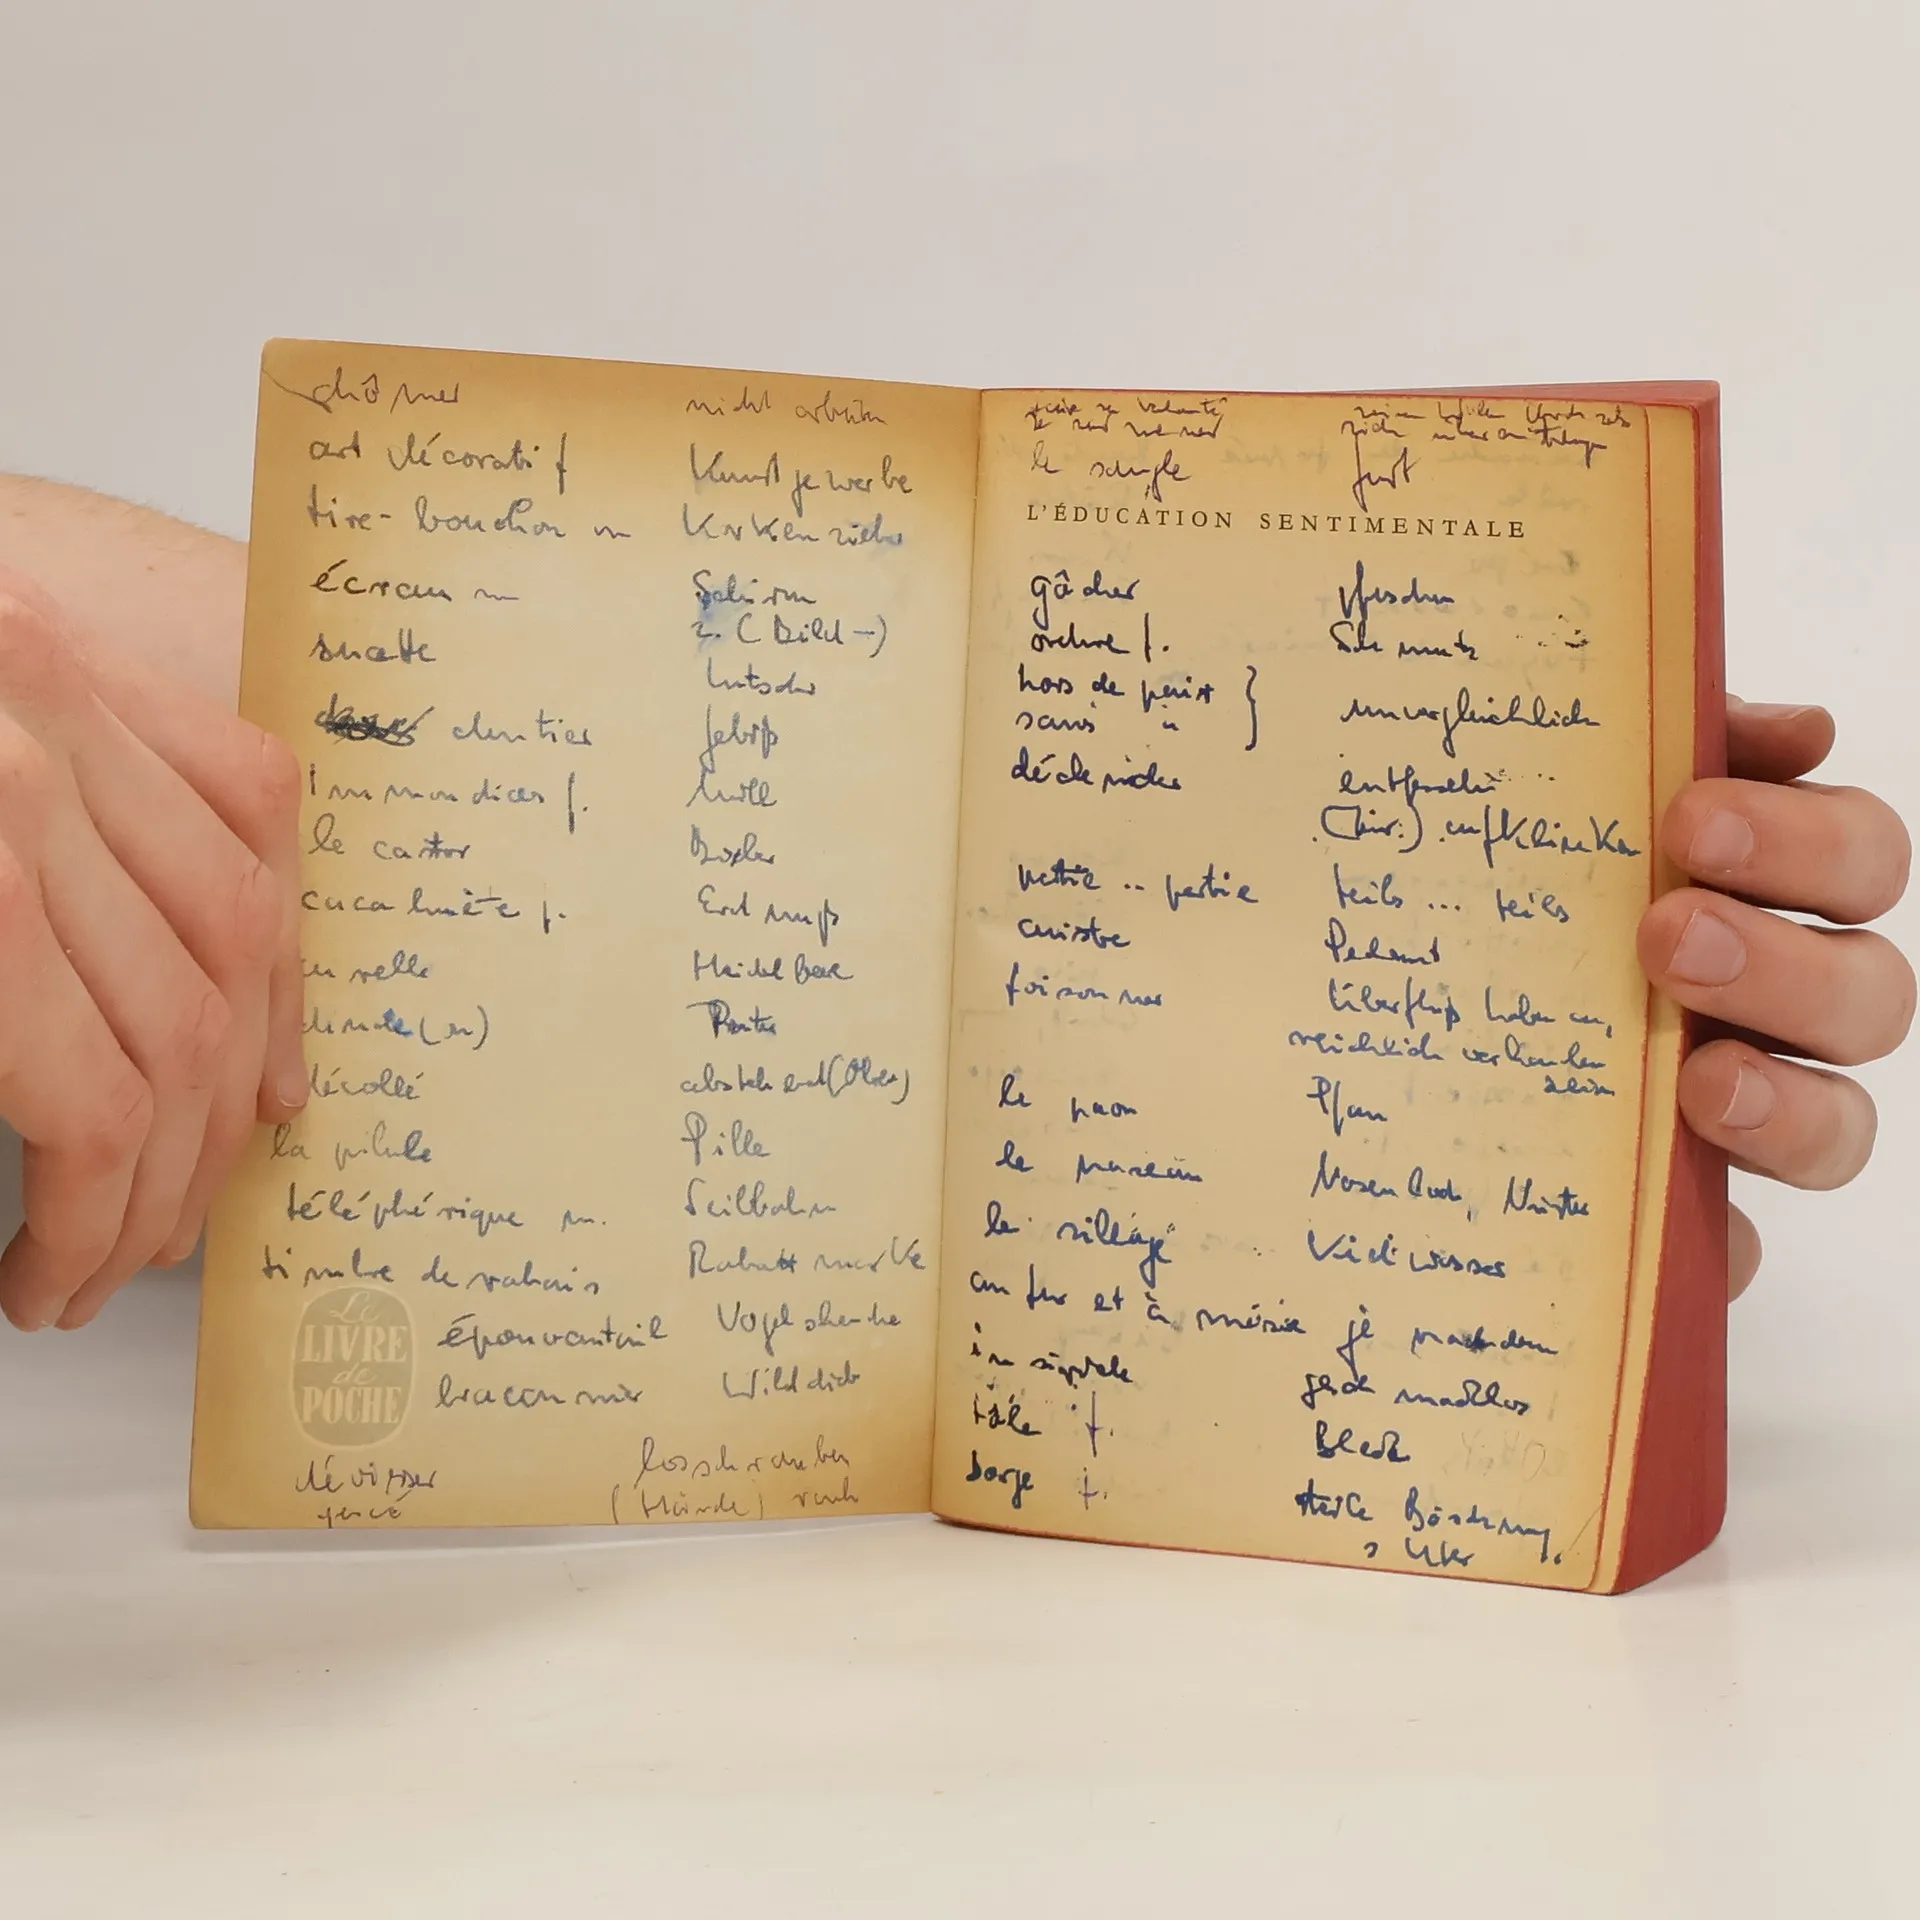 chômer nicht arbeiten
art décoratif Kunstgewerbe
tire-bouchon m Korkenzieher
écran m Schirm
z. (Bild-)
sucette Lutscher
dentier Gebiß
immondices f. Müll
le castor Biber
cacahuète f. Erdnuß
airelle Heidelbeere
dinde (on) Pute
décollé abstehend (Ohren)
la pilule Pille
téléphérique m. Seilbahn
timbre de rabais Rabattmarke
épouvantail Vogelscheuche
LE LIVRE de POCHE
braconnier Wilddieb
dévisser losschrauben
gercé (Hände) rauh
se surmener
le sangle Gurt
L'ÉDUCATION SENTIMENTALE
gâcher pfuschen
ordure f. Schmutz
hors de pair } unvergleichlich
sans "
déchaîner entfesseln
partie .. partie teils ... teils
cuistre Pedant
foisonner Überfluß haben an,
reichlich vorhanden
sein
le paon Pfau
le naseau Nasenloch, Nüster
le sillage Kielwasser
au fur et à mesure je nachdem
insipide geschmacklos
tôle f. Blech
berge f. steile Böschung,
s Ufer